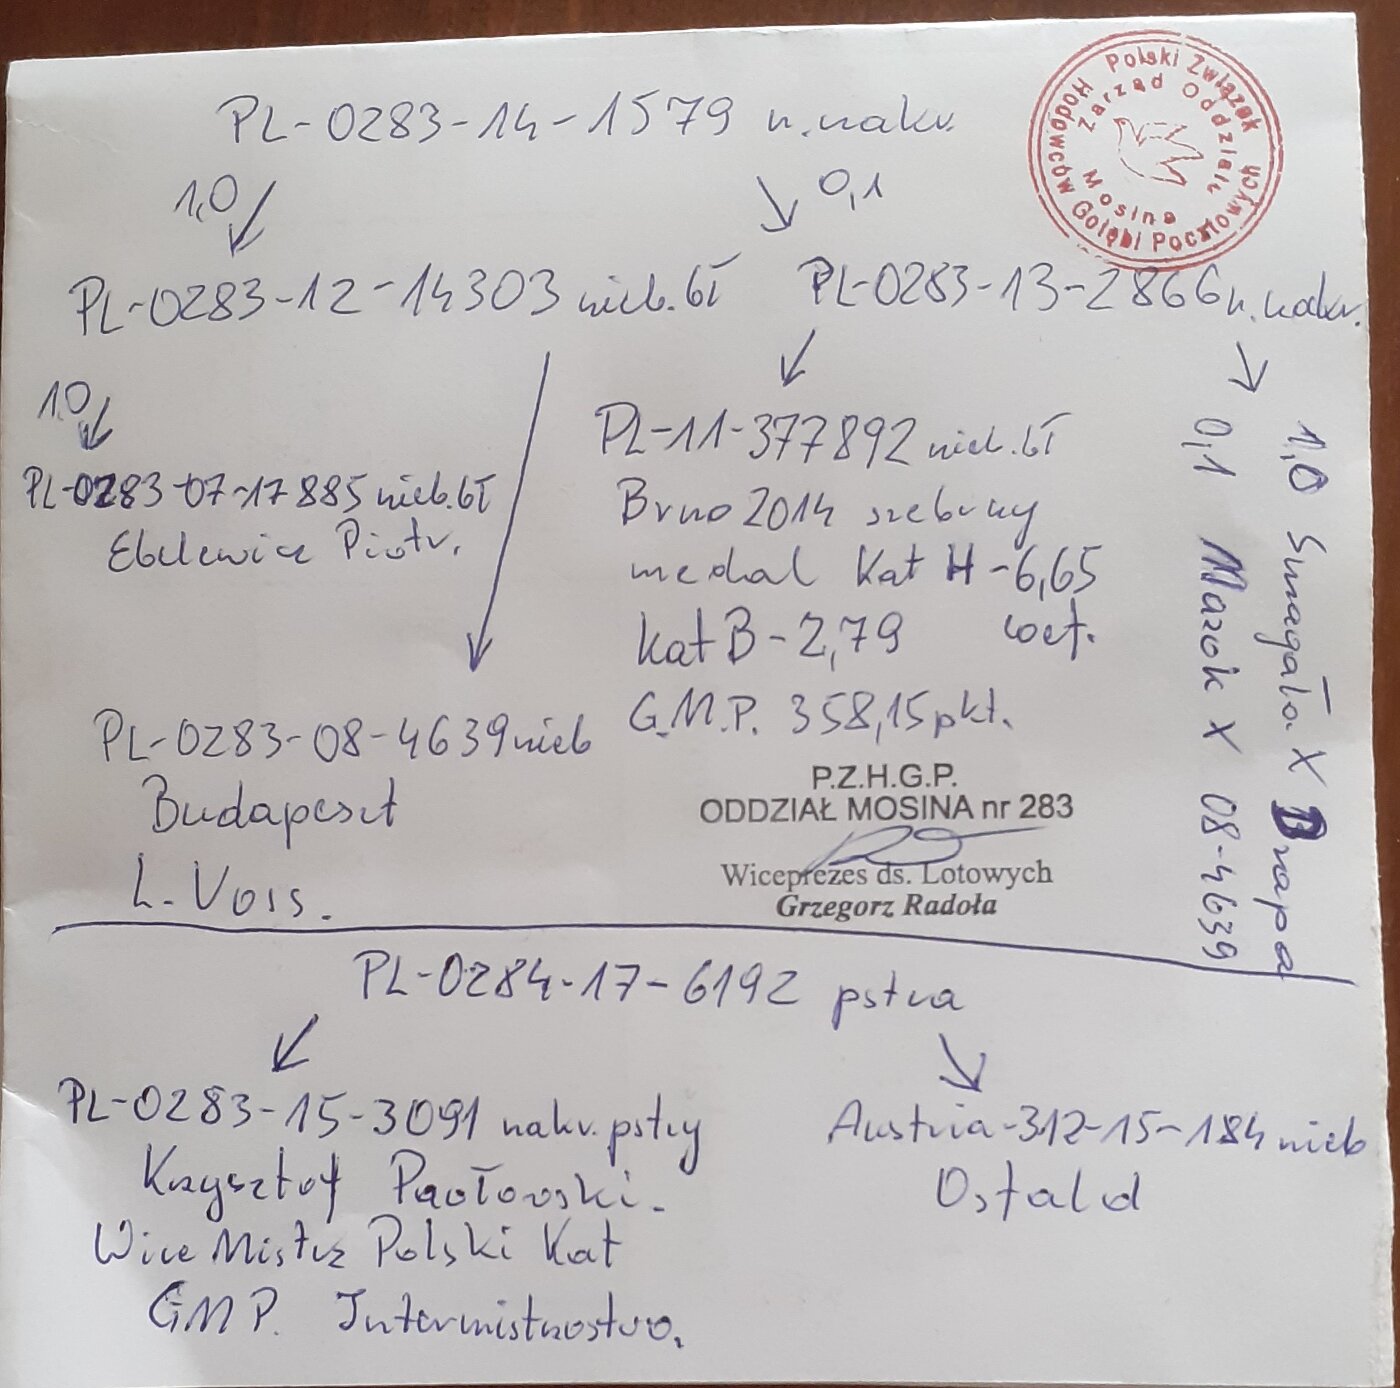 PL-0283-14-1579 n.nakr.
Polski Związek Hodowców Gołębi Pocztowych
Zarząd Oddziału
Mosina
1,0
0,1
PL-0283-12-14303 nieb.bł
PL-0283-13-2866 n.nakr.
1,0
PL-0283-07-17885 nieb.bł
Piotr.
PL-11-377892 nieb.bł
Brno 2014 srebrny
medal Kat H-6,65
kat B-2,79 coef.
G.M.P. 358,15 pkt.
1,0 Smagała X
0,1 Marok X 08-4639
PL-0283-08-4639 nieb
Budapeszt
L. Vois.
P.Z.H.G.P.
ODDZIAŁ MOSINA nr 283
Wiceprezes ds. Lotowych
Grzegorz Radoła
PL-0284-17-6192 pstra
PL-0283-15-3091 nakr. pstry
Krzysztof Pawłowski.
Wice Mistrz Polski Kat
GMP. Intermistrostwo.
Austria-312-15-184 nieb
Ostald